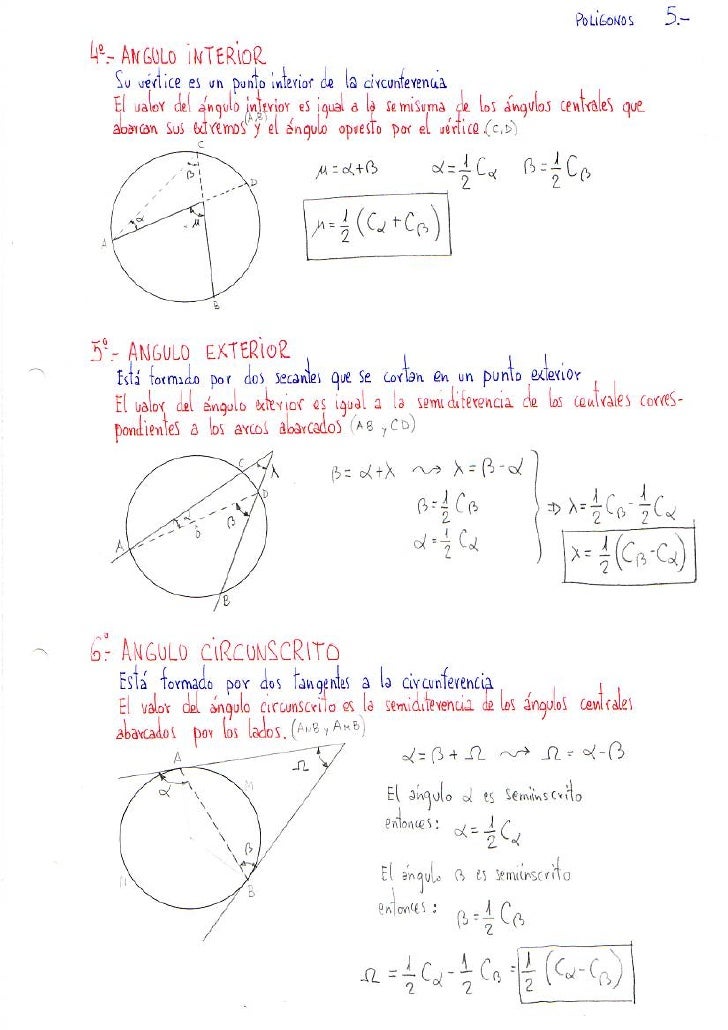 POLÍGONOS 5.-
4º.- ANGULO INTERIOR
Su vértice es un punto interior de la circunferencia
El valor del ángulo interior es igual a la semisuma de los ángulos centrales que
abarcan sus extremos (A,B) y el ángulo opuesto por el vértice. (C,D)
C
β
D
α
A
μ
B
μ = α + β α = 1/2 Cα β = 1/2 Cβ
μ = 1/2 (Cα + Cβ)
5º.- ANGULO EXTERIOR
Está formado por dos secantes que se cortan en un punto exterior
El valor del ángulo exterior es igual a la semidiferencia de los centrales corres-
pondientes a los arcos abarcados (AB y CD)
C
λ
D
α
β
A
B
β = α + λ ⇝ λ = β - α
β = 1/2 Cβ
α = 1/2 Cα
⇒ λ = 1/2 Cβ - 1/2 Cα
λ = 1/2 (Cβ - Cα)
6º.- ANGULO CIRCUNSCRITO
Está formado por dos tangentes a la circunferencia
El valor del ángulo circunscrito es la semidiferencia de los ángulos centrales
abarcados por los lados. (ANB y AMB)
A
Ω
α
M
β
N
B
α = β + Ω ⇝ Ω = α - β
El ángulo α es semiinscrito
entonces: α = 1/2 Cα
El ángulo β es semiinscrito
entonces: β = 1/2 Cβ
Ω = 1/2 Cα - 1/2 Cβ = 1/2 (Cα - Cβ)